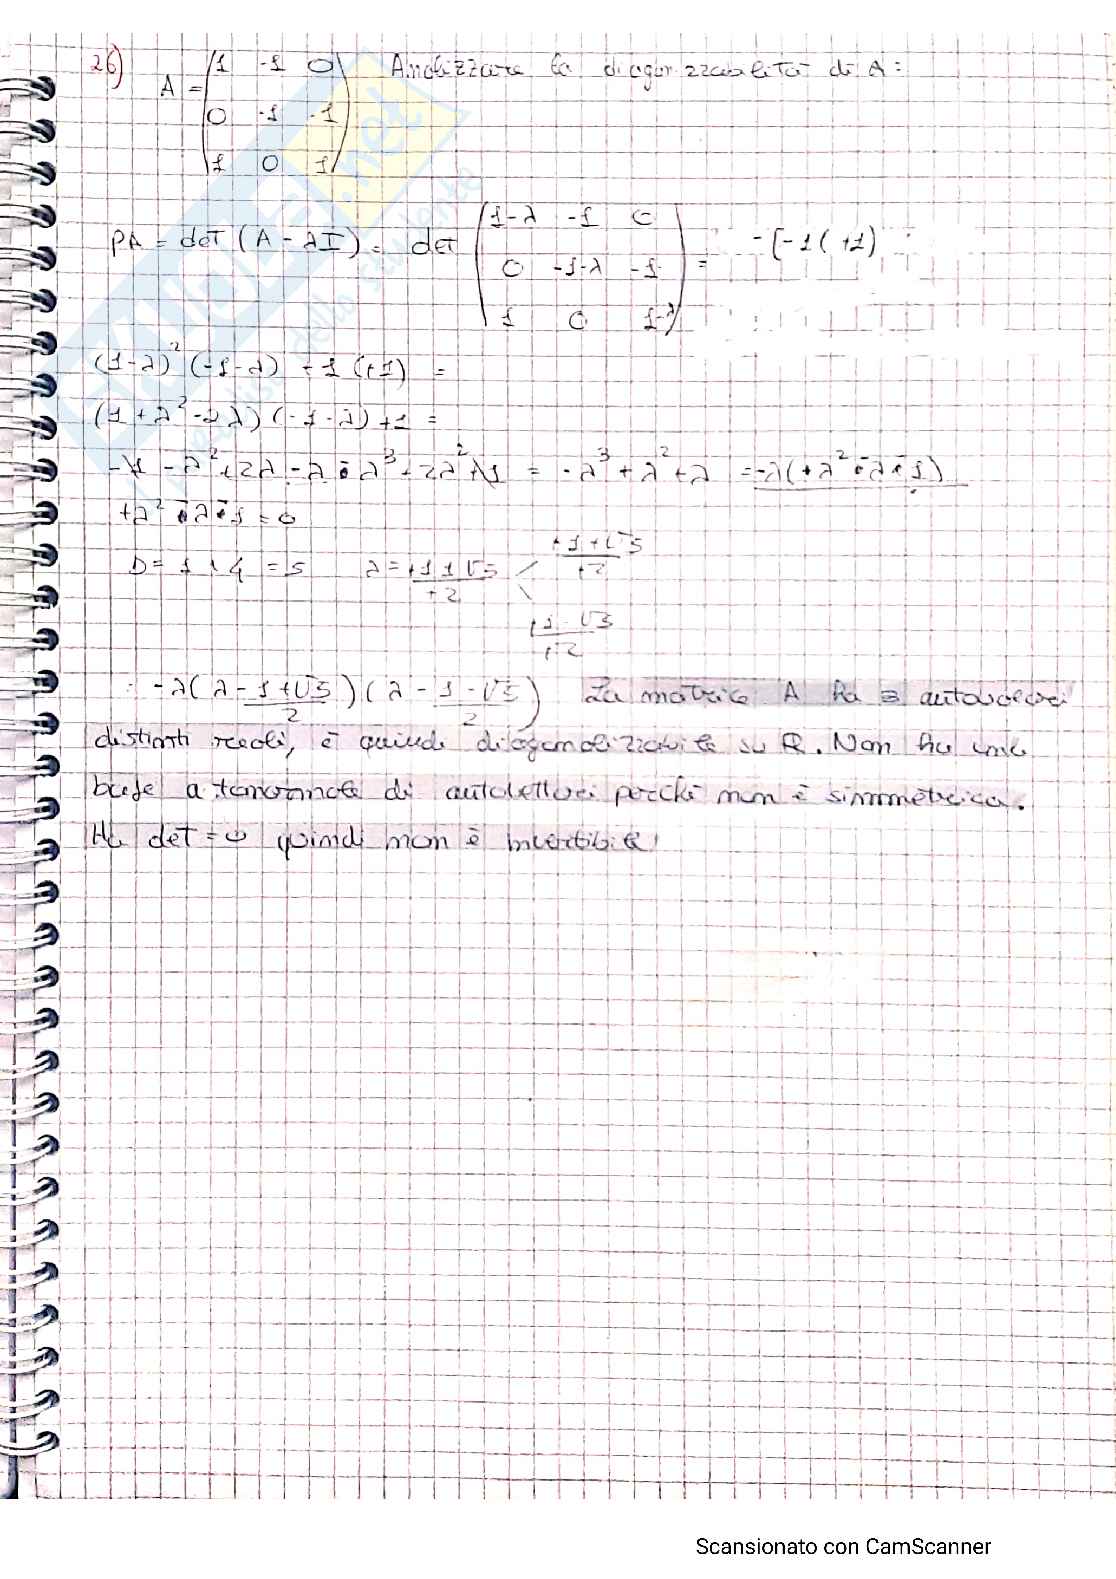 26) A = (1 -1 0 Analizzare la diagonalizzabilità di A:
0 -1 -1
1 0 1)
PA = det (A - λI) = det (1-λ -1 0
0 -1-λ -1 = -[-1(+1)
1 0 1-λ)
(1-λ)² (-1-λ) +1 (+1) =
(1+λ²-2λ) (-1-λ) +1 =
-1 - λ² + 2λ - λ - λ³ + 2λ² + 1 = -λ³ + λ² + λ = -λ(+λ² - λ - 1)
+λ² - λ - 1 = 0
D = 1 + 4 = 5 λ = +1±√5 / +2 +1+√5 / +2
+1-√5 / +2
-λ(λ - 1+√5 / 2) (λ - 1-√5 / 2) La matrice A ha 3 autovalori
distinti reali, è quindi diagonalizzabile su R. Non ha una
base ortonormale di autovettori perché non è simmetrica.
Ha det = 0 quindi non è invertibile
SKUOLA.net
Scansionato con CamScanner